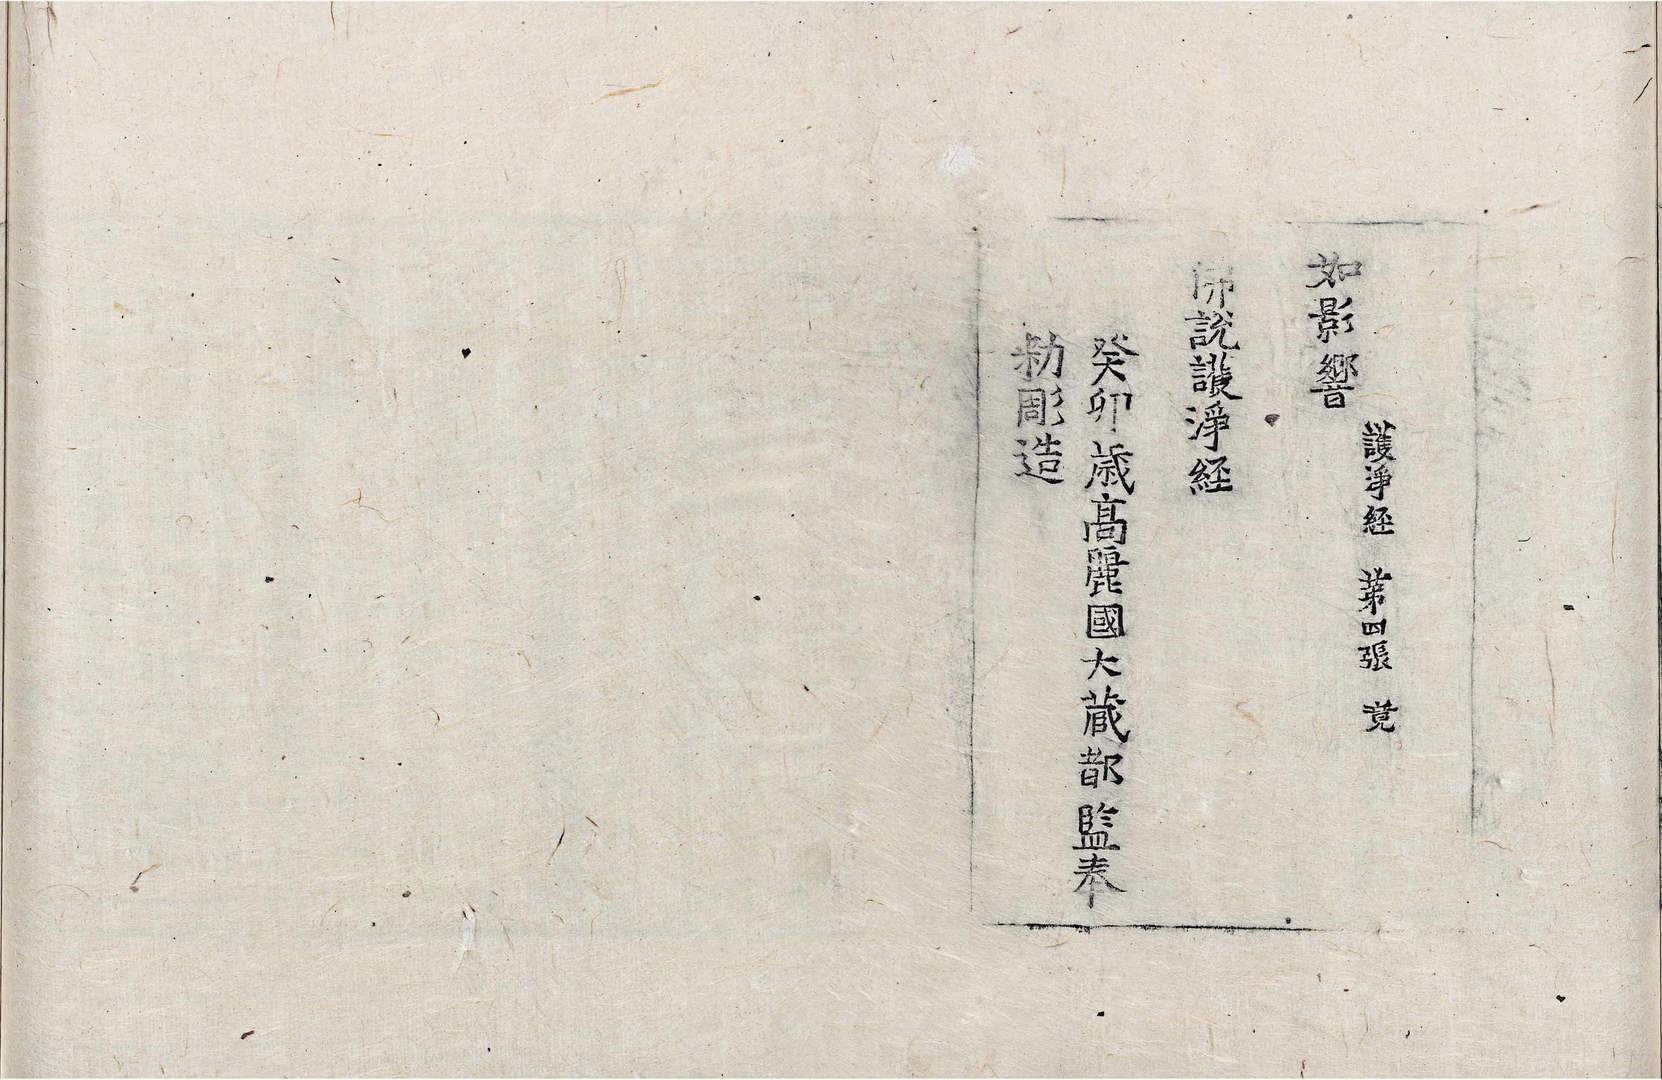 護淨經 第四張 竟
如影響
佛說護淨経
癸卯歲高麗國大藏都監奉
勅彫造